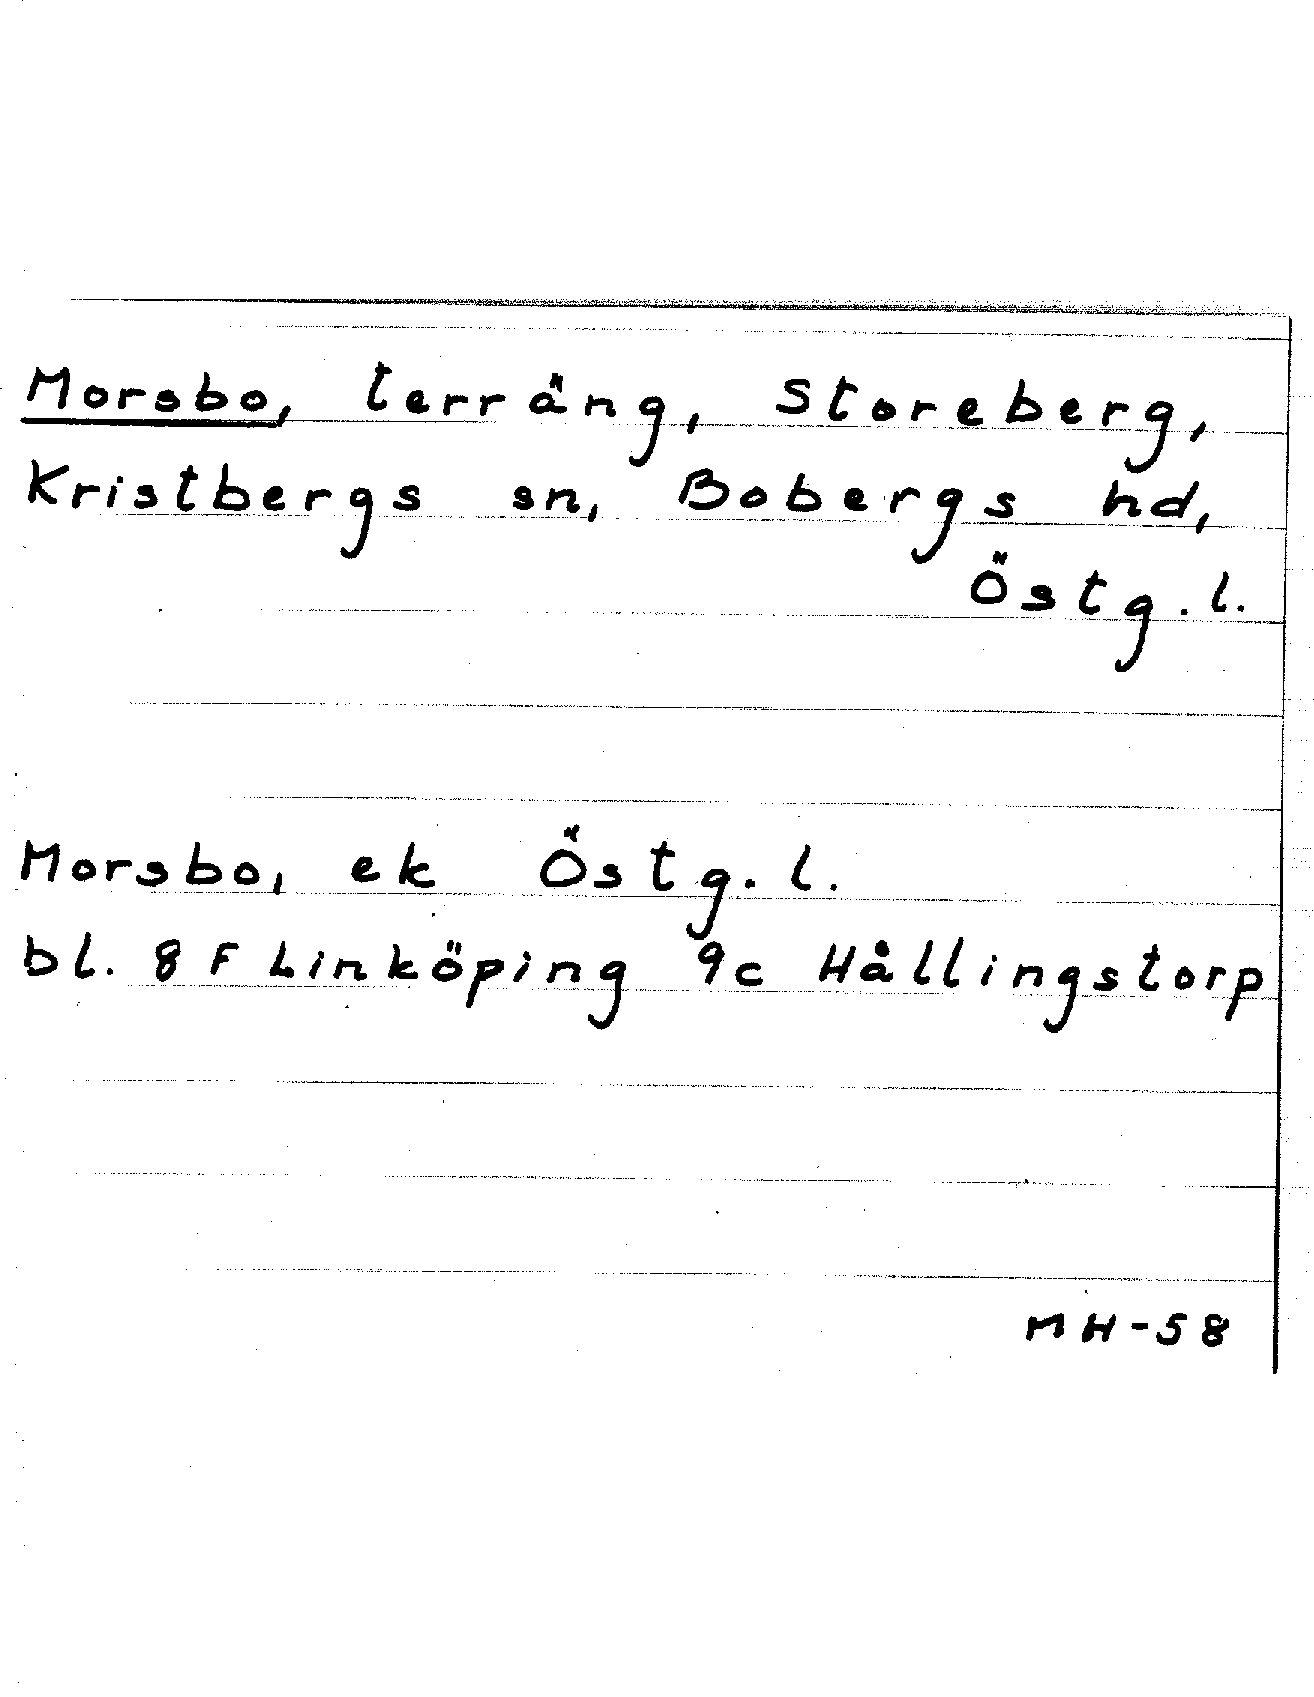 Morsbo, terräng, Storeberg,
Kristbergs sn, Bobergs hd,
Östg.l.
Morsbo, ek Östg.l.
bl. 8 F Linköping 9c Hållingstorp
MH-58